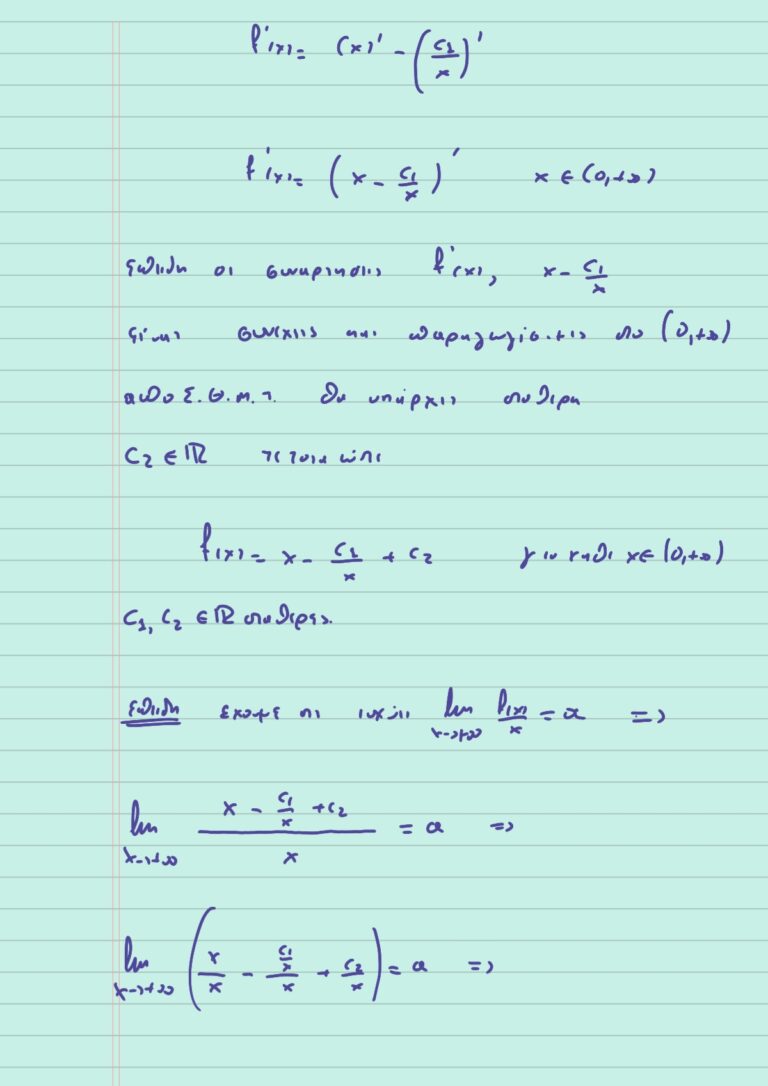 f'(x) = (x)' - (c₁/x)'
f'(x) = (x - c₁/x)' x ∈ (0,+∞)
Επειδη οι συναρτησεις f'(x), x - c₁/x
ειναι συνεχεις και παραγωγισιμες στο (0,+∞)
απο Σ.Θ.Μ.Τ. θα υπαρχει σταθερα
c₂ ∈ ℝ τετοια ωστε
f(x) = x - c₁/x + c₂ για καθε x ∈ (0,+∞)
c₁, c₂ ∈ ℝ σταθερες.
Επειδη εχουμε οτι ισχυει lim x→+∞ f(x)/x = α =>
lim x→+∞ (x - c₁/x + c₂)/x = α =>
lim x→+∞ (x/x - (c₁/x)/x + c₂/x) = α =>